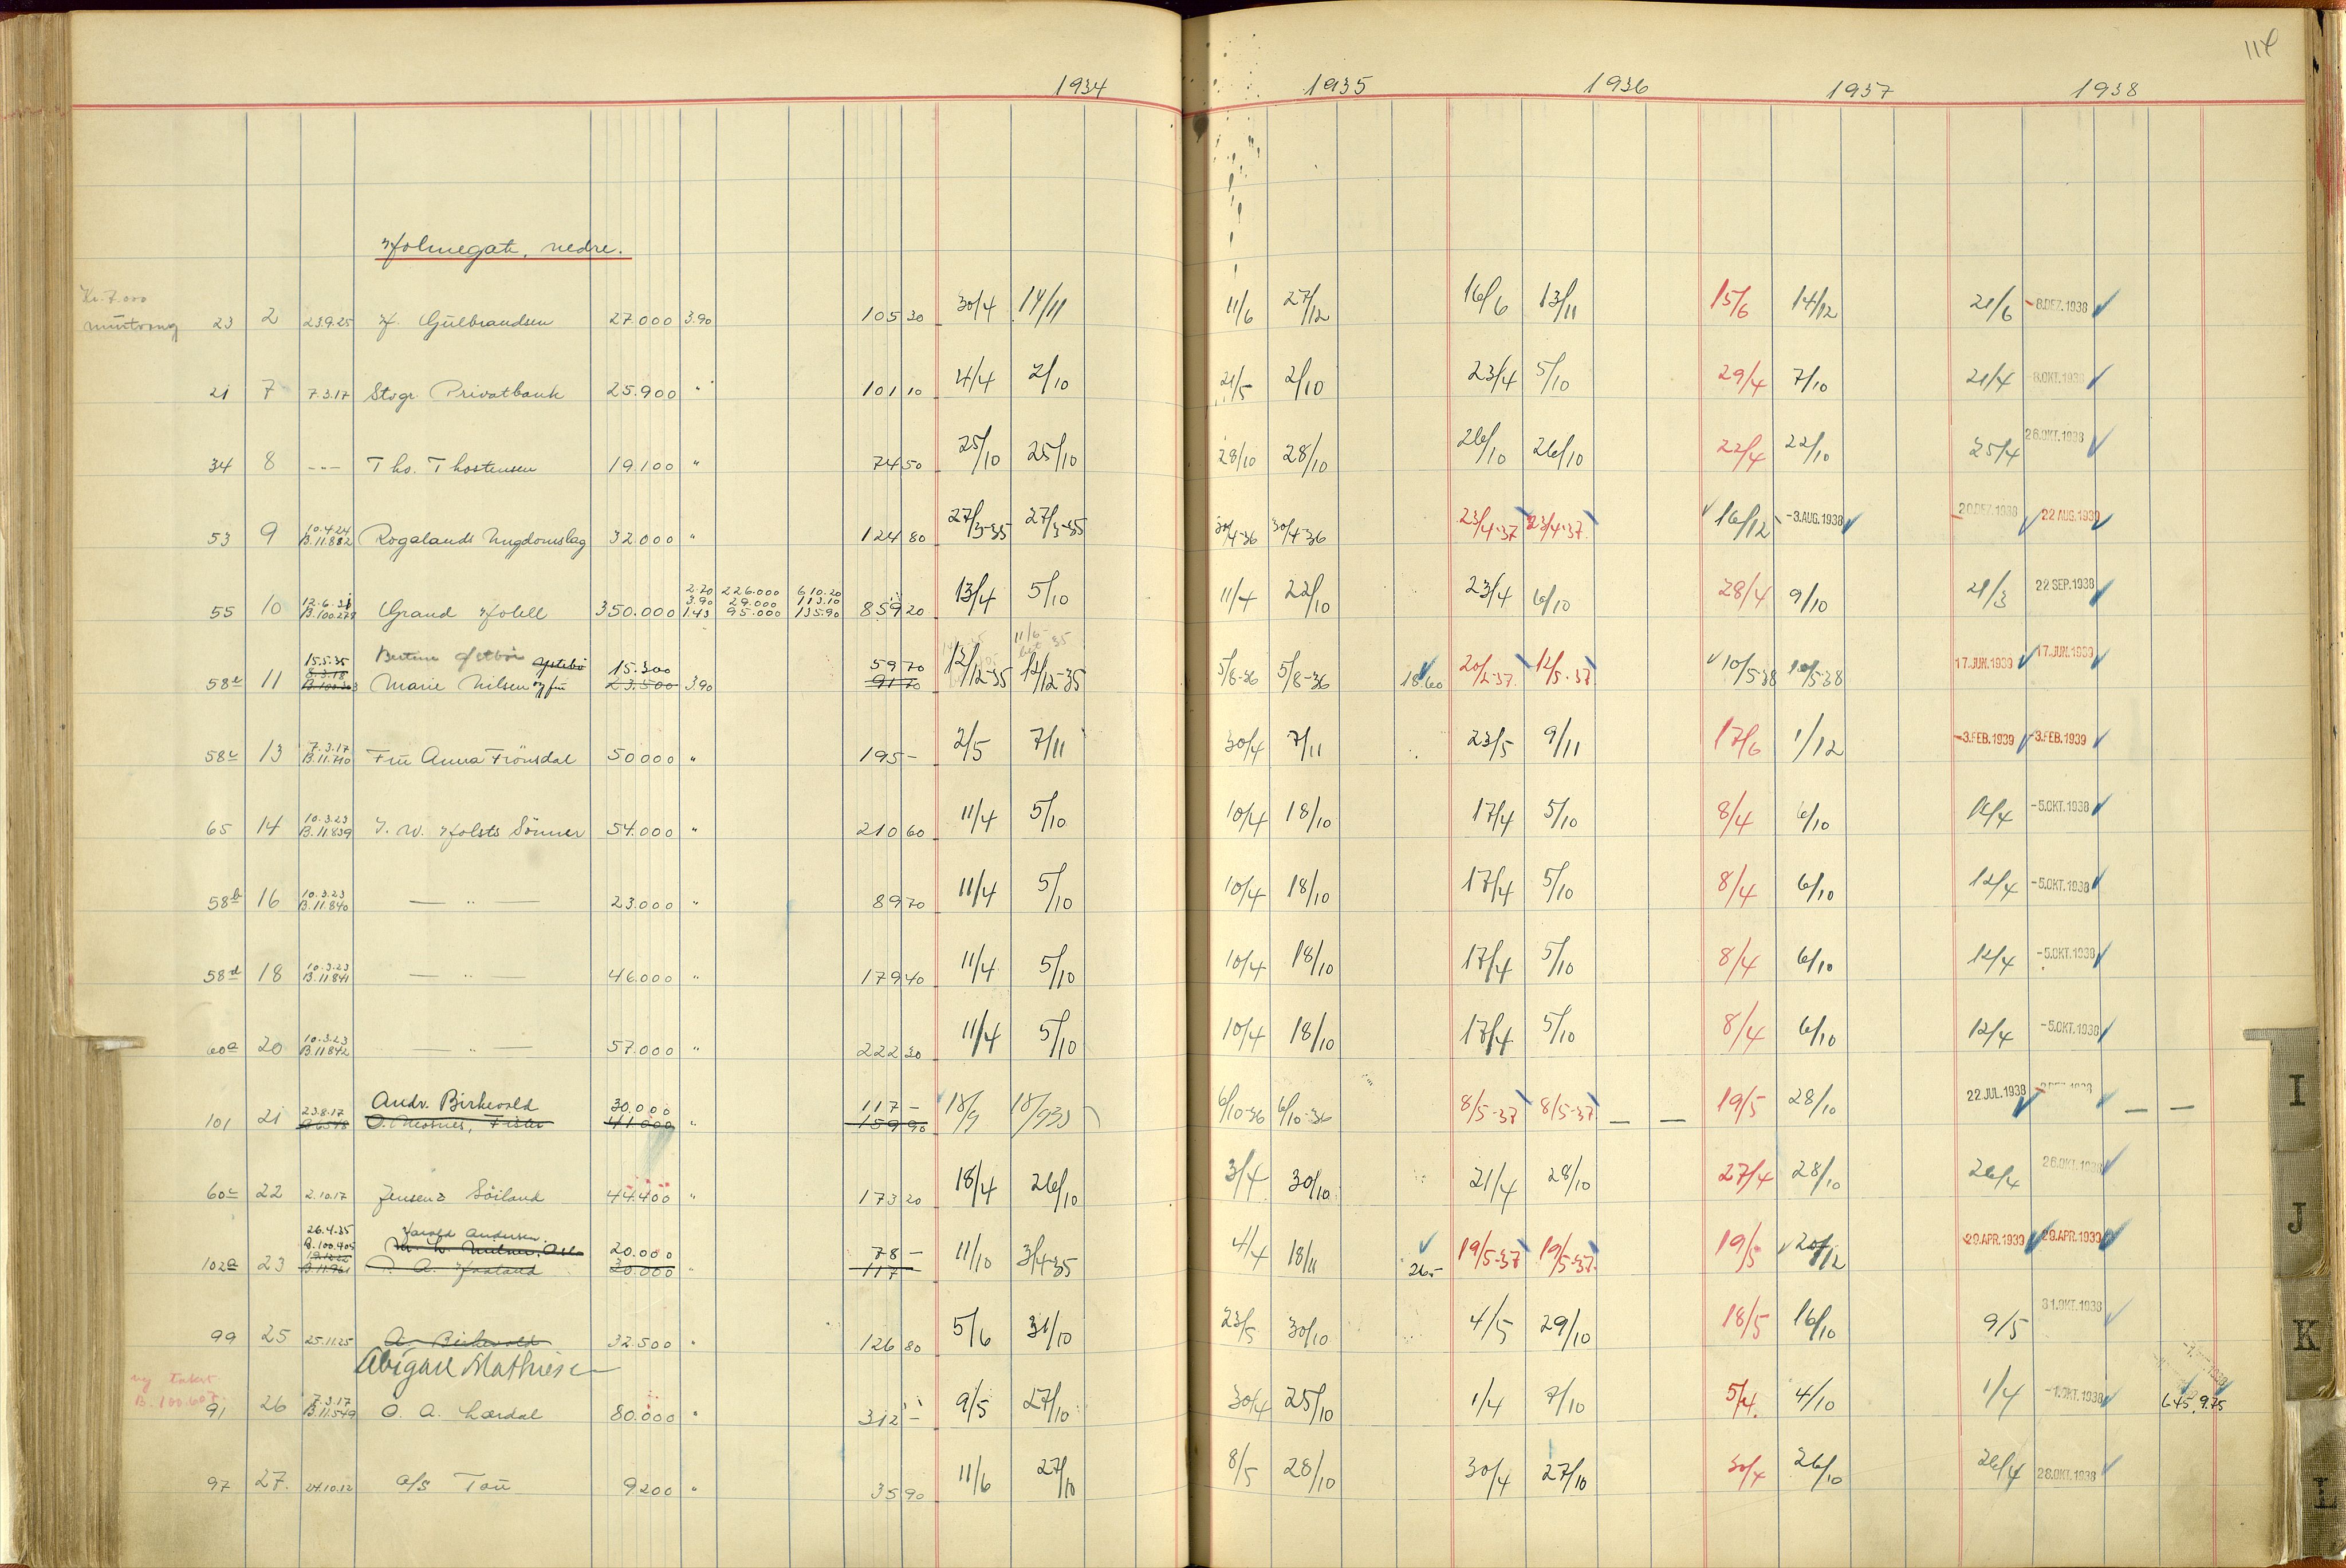 114
1934 1935 1936 1937 1938
Holmegate, nedre.
Kr. 7.000
23 2 23.9.25 H. Gulbrandsen 27.000 3.90 105 30 30/4 14/11 11/6 27/12 16/6 13/11 15/6 14/12 21/6 -8.DEZ.1938
21 7 7.3.17 Stvgr. Privatbank 25.900 " 101 10 4/4 2/10 21/5 2/10 23/4 5/10 29/4 7/10 21/4 -8.OKT.1938
34 8 --- Tho. Thostensen 19.100 " 74 50 25/10 25/10 28/10 28/10 26/10 26/10 22/4 22/10 25/4 26.OKT.1938
53 9 10.4.24 B.11.882 Rogalands Ungdomslag 32.000 " 124 80 27/3-35 27/3-35 30/4-36 30/4-36 23/4-37 23/4-37 16/12 -3.AUG.1938 20.DEZ.1938 22 AUG.1939
2.20 226.000 610.20
3.90 29.000 113.10
55 10 12.6.31 B.100.279 Grand Hotell 350.000 1.43 95.000 135.90 859 20 13/4 5/10 11/4 22/10 23/4 6/10 28/4 9/10 21/3 22 SEP.1938
15.5.35 Bertine Ystebö 15.300 59 70
58e 11 8.3.18 Marie Nilsen og fru 23.500 3.90 91 70 12/12-35 12/12-35 5/8-36 5/8-36 18.60 20/2-37 12/5-37 10/5-38 10/5-38 17.JUN.1939 17.JUN.1939
58c 13 7.3.17 B.11.710 Fru Anna Frönsdal 50000 " 195 - 2/5 7/11 30/4 7/11 23/5 9/11 17/6 1/12 -3.FEB.1939 -3.FEB.1939
65 14 10.3.23 B.11.839 I. W. Holsts Sönner 54.000 " 210 60 11/4 5/10 10/4 18/10 17/4 5/10 8/4 6/10 12/4 -5.OKT.1938
58b 16 10.3.23 B.11.840 — " — 23.000 " 89 70 11/4 5/10 10/4 18/10 17/4 5/10 8/4 6/10 12/4 -5.OKT.1938
58d 18 10.3.23 B.11.841 — " — 46.000 " 179 40 11/4 5/10 10/4 18/10 17/4 5/10 8/4 6/10 12/4 -5.OKT.1938
60a 20 10.3.23 B.11842 — " — 57.000 " 222 30 11/4 5/10 10/4 18/10 17/4 5/10 8/4 6/10 12/4 -5.OKT.1938
Andr. Birkevold 30.000 117 -
101 21 23.8.17 41000 " 159 90 18/9 6/10-36 6/10-36 8/5-37 8/5-37 — — 19/5 28/10 22.JUL.1938 — —
60c 22 2.10.17 Jensen & Söiland 44.400 " 173 20 18/4 26/10 3/4 30/10 21/4 28/10 27/4 28/10 26/4 26.OKT.1938
26.4.35 Harald Andersen
B.100.405 20.000 78 -
102a 23 A. Haaland 30.000 " 117 11/10 3/4-35 4/4 18/11 26.- 19/5-37 19/5-37 19/5 20/12 29.APR.1939 29.APR.1939
99 25 25.11.25 A. Birkevold 32.500 " 126 80 5/6 31/10 23/5 30/10 4/5 29/10 18/5 16/10 9/5 31.OKT.1938
Abigael Mathiesen
ny takst
B. 100.607
91 26 7.3.17 B.11.549 O. A. Lærdal 80.000 " 312 - 9/5 27/10 30/4 25/10 1/4 7/10 5/4 4/10 1/4 -1.OKT.1938 6.45 9.75
97 27. 24.10.12 a/s Tou 9200 " 35 90 11/6 27/10 8/5 28/10 30/4 27/10 30/4 26/10 26/4 28.OKT.1938
I
J
K
L